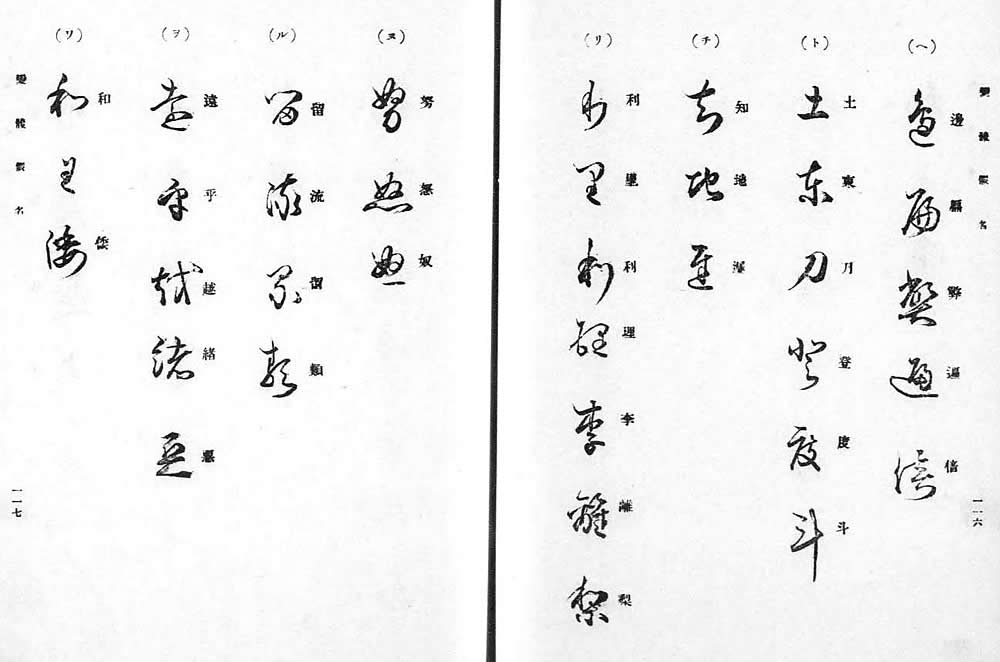 變體假名
一一六
(ヘ) 邊 弊 遍 倍
(ト) 土 東 刀 登 度 斗
(チ) 知 地 遲
(リ) 利 里 利 理 李 離 梨
(ヌ) 努 怒 奴
(ル) 留 流 留 類
(ヲ) 遠 乎 越 緒 惡
(ワ) 和 倭
變體假名
一一七